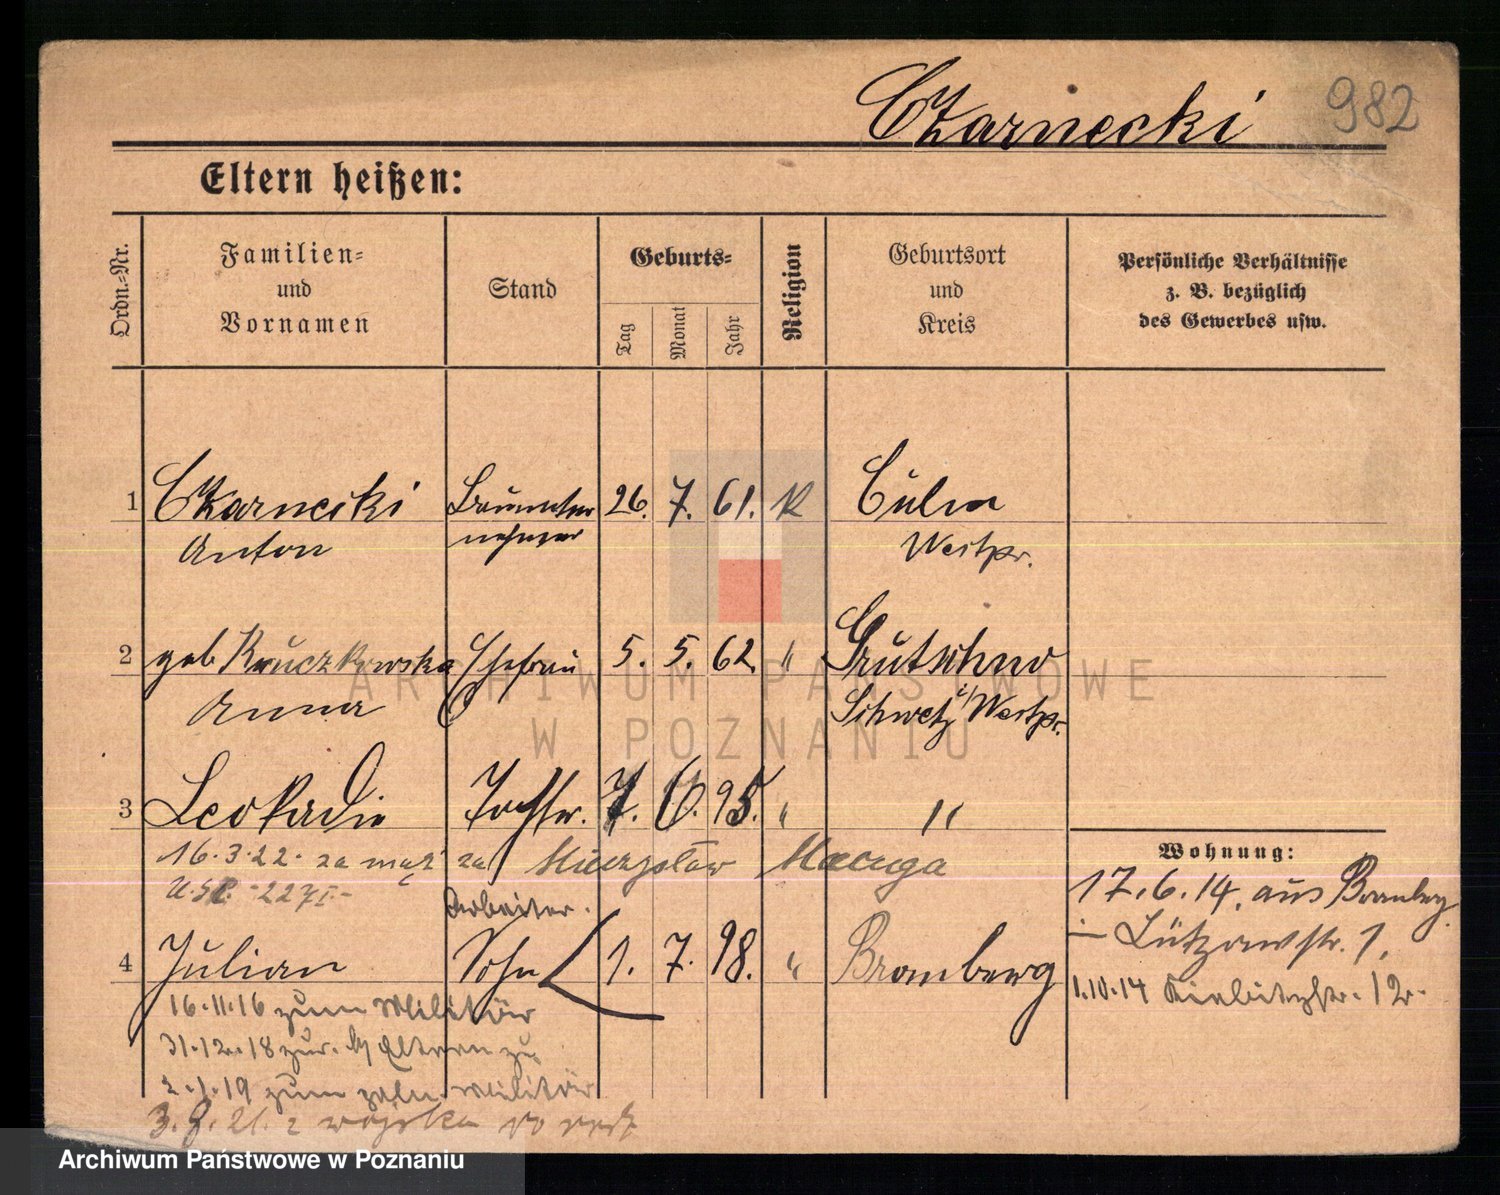 Czarnecki 982
Eltern heißen:
Ordn.-Nr.
Familien-
und
Vornamen
Stand
Geburts-
Tag
Monat
Jahr
Religion
Geburtsort
und
Kreis
Persönliche Verhältnisse
z. B. bezüglich
des Gewerbes usw.
1 Czarnecki 26. 7. 61. K Culm
Anton nehmer Westpr.
2 geb Kruczkowska Ehefrau 5. 5. 62 " Grutschno
Anna Schwetz i/ Westpr.
3 Leokadie Tochter. 7. 6. 95. " "
16.3.22. za mąż za Mieczysław Macuga
Arbeiter.
4 Julian Sohn 1. 7. 98. " Bromberg
16.11.16 zum Militär
31.12.18 zur. Eltern zu
2.1.19 zum poln. Militär
3.8.21. z wojska
Wohnung:
17.6.14. aus Bromberg
Lützowstr. 1.
1.10.14
ARCHIWUM PAŃSTWOWE
W POZNANIU
Archiwum Państwowe w Poznaniu